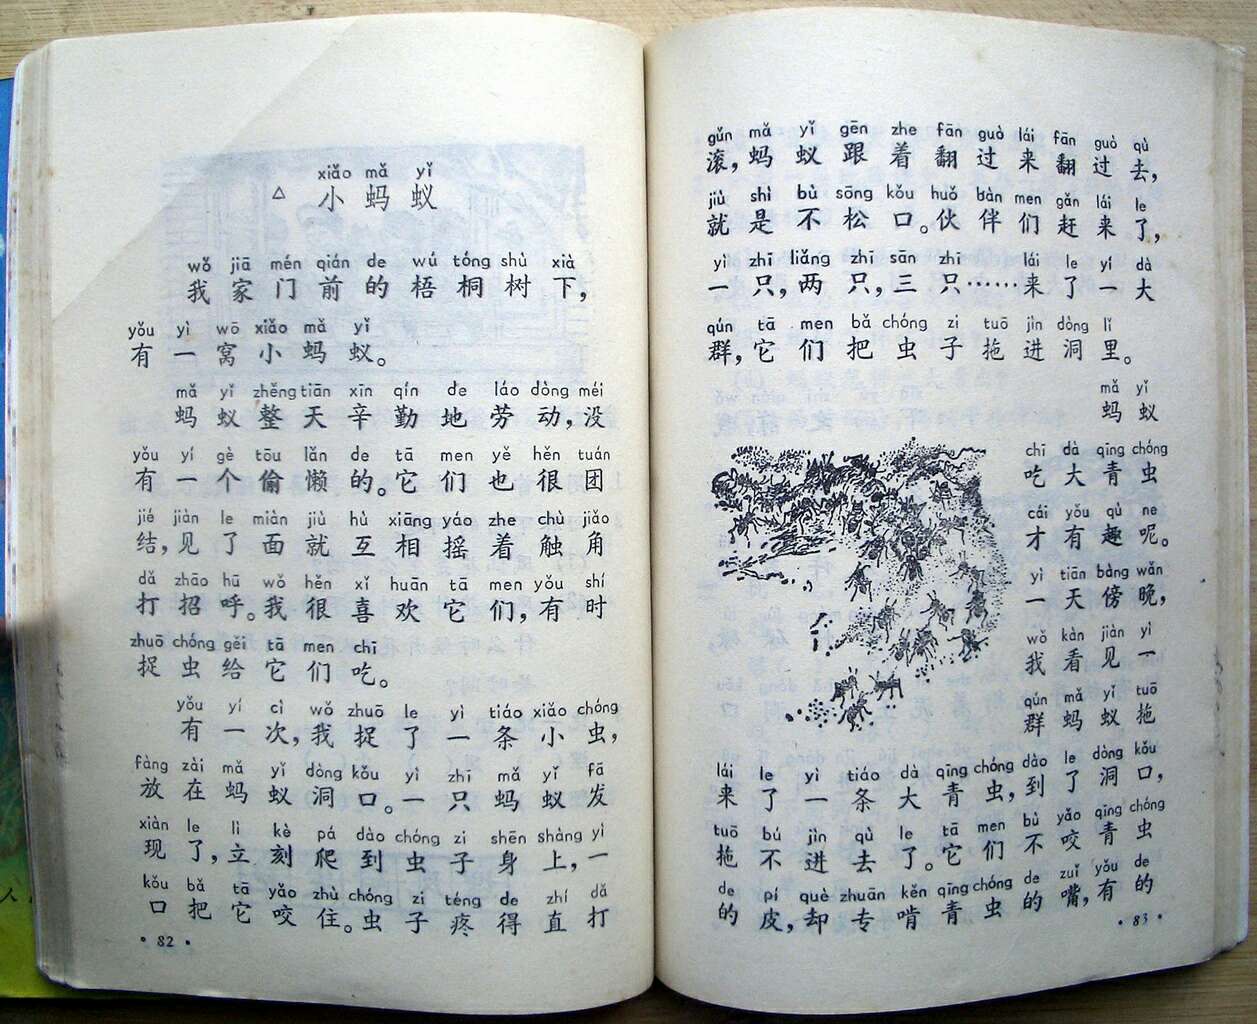 xiǎo mǎ yǐ
△ 小蚂蚁
wǒ jiā mén qián de wú tóng shù xià
我家门前的梧桐树下，
yǒu yì wō xiǎo mǎ yǐ
有一窝小蚂蚁。
mǎ yǐ zhěng tiān xīn qín de láo dòng méi
蚂蚁整天辛勤地劳动，没
yǒu yí gè tōu lǎn de tā men yě hěn tuán
有一个偷懒的。它们也很团
jié jiàn le miàn jiù hù xiāng yáo zhe chù jiǎo
结，见了面就互相摇着触角
dǎ zhāo hū wǒ hěn xǐ huān tā men yǒu shí
打招呼。我很喜欢它们，有时
zhuō chóng gěi tā men chī
捉虫给它们吃。
yǒu yí cì wǒ zhuō le yì tiáo xiǎo chóng
有一次，我捉了一条小虫，
fàng zài mǎ yǐ dòng kǒu yì zhī mǎ yǐ fā
放在蚂蚁洞口。一只蚂蚁发
xiàn le lì kè pá dào chóng zi shēn shàng yì
现了，立刻爬到虫子身上，一
kǒu bǎ tā yǎo zhù chóng zi téng de zhí dǎ
口把它咬住。虫子疼得直打
• 82 •
gǔn mǎ yǐ gēn zhe fān guò lái fān guò qù
滚，蚂蚁跟着翻过来翻过去，
jiù shì bù sōng kǒu huǒ bàn men gǎn lái le
就是不松口。伙伴们赶来了，
yì zhī liǎng zhī sān zhī lái le yí dà
一只，两只，三只……来了一大
qún tā men bǎ chóng zi tuō jìn dòng lǐ
群，它们把虫子拖进洞里。
mǎ yǐ
蚂蚁
chī dà qīng chóng
吃大青虫
cái yǒu qù ne
才有趣呢。
yì tiān bàng wǎn
一天傍晚，
wǒ kàn jiàn yì
我看见一
qún mǎ yǐ tuō
群蚂蚁拖
lái le yì tiáo dà qīng chóng dào le dòng kǒu
来了一条大青虫，到了洞口，
tuō bú jìn qù le tā men bù yǎo qīng chóng
拖不进去了。它们不咬青虫
de pí què zhuān kěn qīng chóng de zuǐ yǒu de
的皮，却专啃青虫的嘴，有的
• 83 •